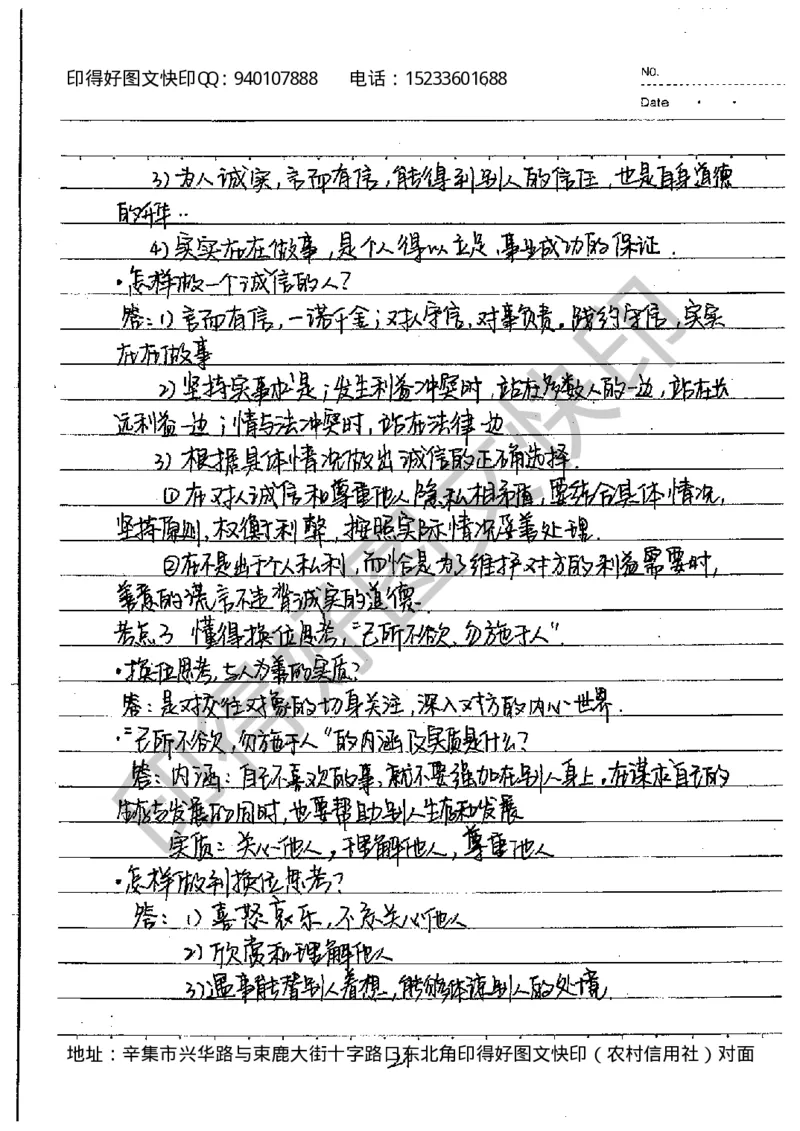 印得好图文快印QQ：940107888 电话：15233601688
No.
Date
3）为人诚实，言而有信，能得到别人的信任，也是自身道德
的升华．
4）实实在在做事，是个人得以立足、事业成功的保证．
·怎样做一个诚信的人？
答：1）言而有信，一诺千金；对人守信，对事负责。践约守信，实实
在在做事
2）坚持实事求是；发生利益冲突时，站在多数人的一边，站在长
远利益一边；情与法冲突时，站在法律一边
3）根据具体情况做出诚信的正确选择．
①在对人诚信和尊重他人隐私相矛盾，要结合具体情况，
坚持原则，权衡利弊，按照实际情况妥善处理．
②在不是出于个人私利，而恰是为了维护对方的利益需要时，
善意的谎言不违背诚实的道德．
考点3 懂得换位思考，“己所不欲，勿施于人”．
·换位思考，与人为善的实质？
答：是对交往对象的切身关注，深入对方的内心世界．
·“己所不欲，勿施于人”的内涵及实质是什么？
答：内涵：自己不喜欢的事，就不要强加在别人身上。在谋求自己的
生存与发展的同时，也要帮助别人生存和发展
实质：关心他人，理解他人，尊重他人
·怎样做到换位思考？
答：1）喜怒哀乐，不忘关心他人
2）欣赏和理解他人
3）遇事能替别人着想，能够体谅别人的处境．
地址：辛集市兴华路与束鹿大街十字路口东北角印得好图文快印（农村信用社）对面
印得好图文快印